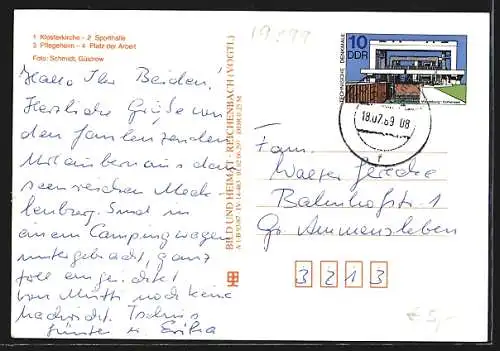 1 Klosterkirche - 2 Sporthalle
3 Pflegeheim - 4 Platz der Arbeit
Foto: Schmidt, Güstrow
Hallo Ihr Beiden!
Herzliche Grüße von
den faulenzenden
aus dem
seenreichen Meck-
lenburg. Sind in
einem Campingwagen
untergebracht, ganz
toll eingerichtet
von Mutti noch keine
Nachricht. Tschüs
Günter u. Erika
BILD UND HEIMAT · REICHENBACH (VOGTL)
10
DDR
TECHNISCHE DENKMALE
18.07.89 08
Fam.
Walter
Bahnhofstr. 1
Gr. Ammensleben
3 2 1 3
€ 5,-